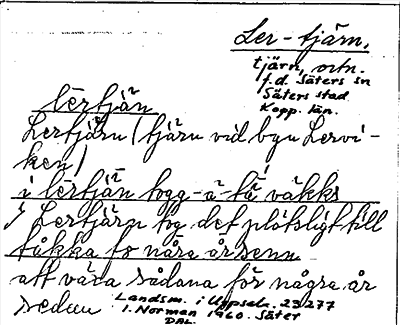 Ler-tjärn,
tjärn, ortn.
f.d. Säters sn
Säters stad
Kopp. län.
lērtjän
Lertjärn (tjärn vid byn Lervi-
ken)
i lērtjän togg-ä-tä väkks
I Lertjärn tog det plötsligt till
tåkka fo nåra årsenn
att växa sådana för några år
sedan
Landsm. i Uppsala. 23277
I. Norman 1960. Säter
DAL.